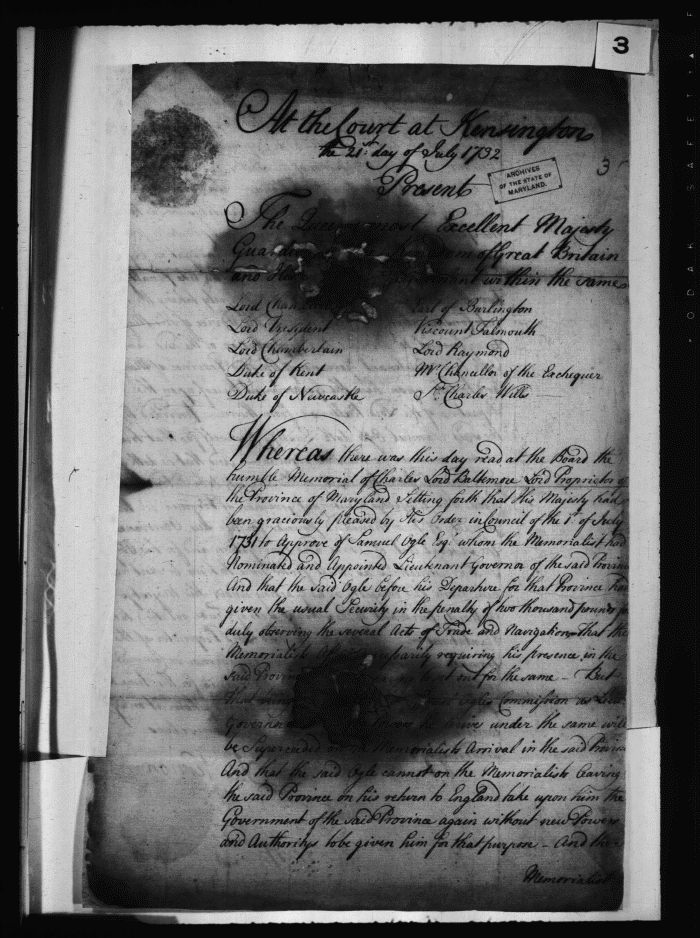 3
At the Court at Kensington
the 21st day of July 1732
Present
ARCHIVES
OF THE STATE OF
MARYLAND.
The Queens most Excellent Majesty
Guardian of Great Britain
and within the same
Lord Earl of Burlington
Lord President Viscount Falmouth
Lord Chamberlain Lord Raymond
Duke of Kent Mr Chancellor of the Exchequer
Duke of Newcastle Sr Charles Wills
Whereas there was this day read at the Board the
humble Memorial of Charles Lord Baltimore Lord Proprietor of
the Province of Maryland Setting forth that His Majesty had
been graciously pleased by His Order in Council of the 1st of July
1731 to Approve of Samuel Ogle Esqr whom the Memorialist had
Nominated and Appointed Lieutenant Governor of the said Province
And that the said Ogle before his Departure for that Province had
given the usual Security in the penalty of two thousand pounds for
duly observing the several Acts of Trade and Navigation That the
Memorialists requiring his presence in the
said Province out for the same - But
that Ogles Commission as Lieut
Governor under the same will
be Superceded on Memorialists Arrival in the said Province
And that the said Ogle cannot on the Memorialists leaving
the said Province on his return to England take upon him the
Government of the said Province again without new Powers
and Authoritys to be given him for that purpose - And the
Memorialist